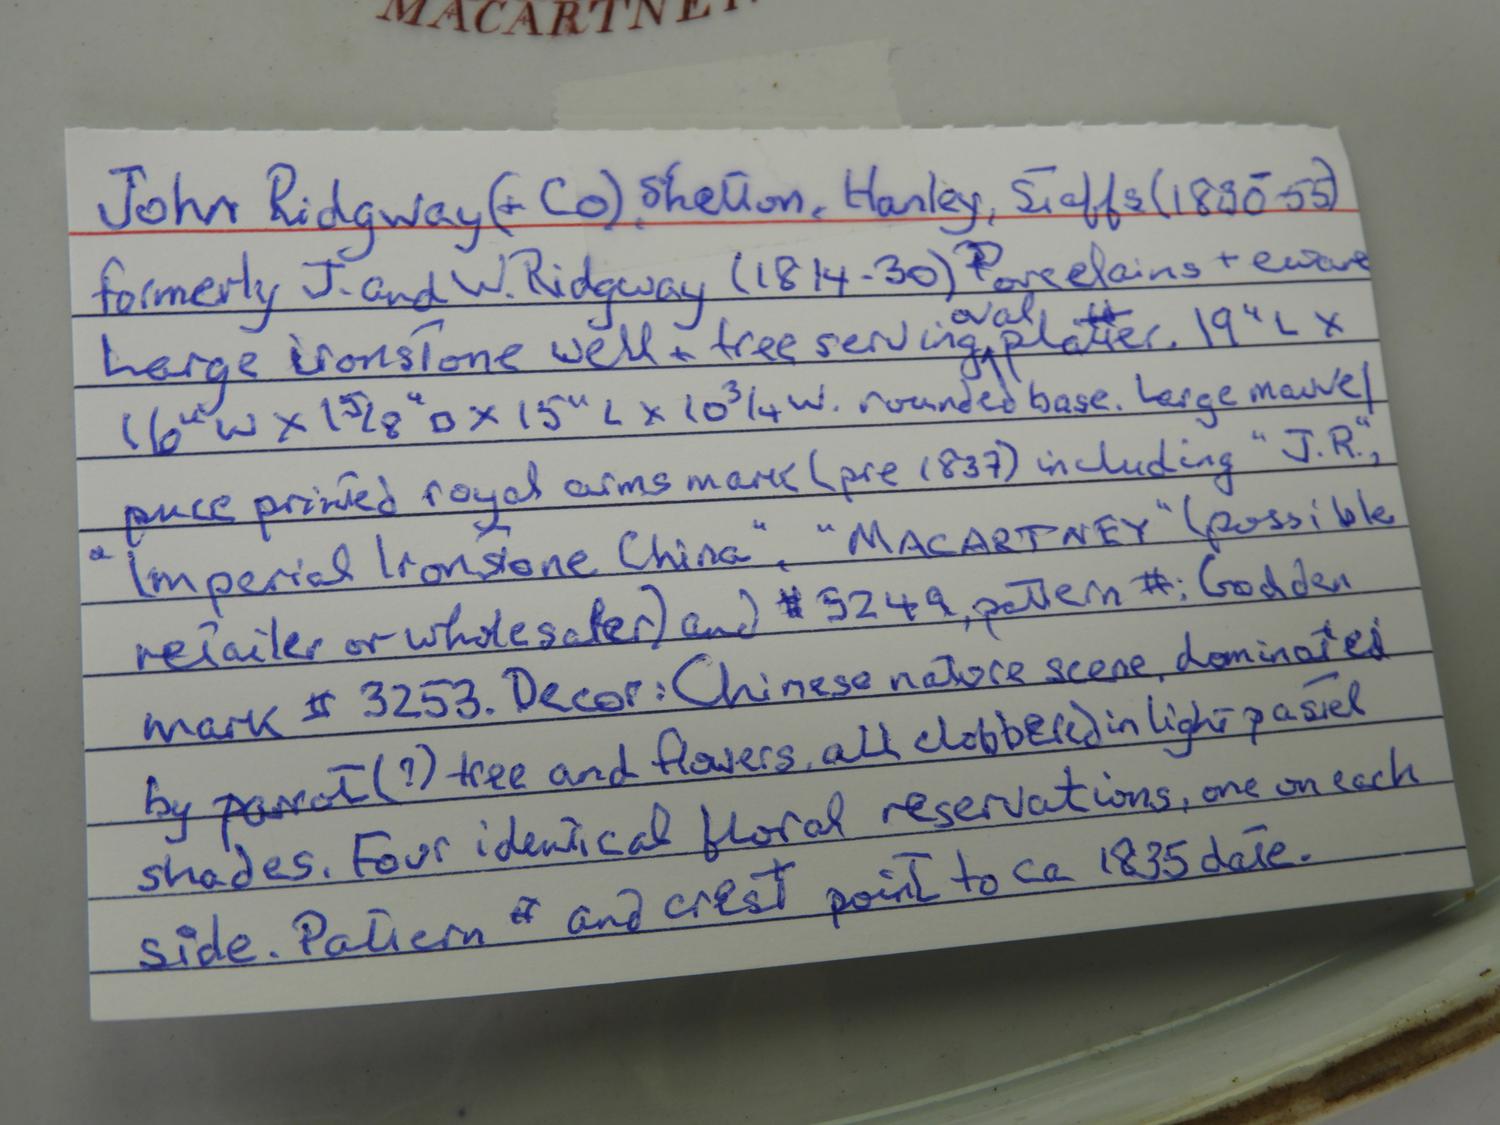 MACARTNEY
John Ridgway (+ Co), Shelton, Hanley, Staffs (1830-55)
formerly J. and W. Ridgway (1814-30) Porcelains + eware
Large ironstone well + tree serving oval platter. 19" L x
16" W x 1 5/8" D x 15" L x 10 3/4 W. rounded base. Large mauve/
puce printed royal arms mark (pre 1837) including "J.R.",
"Imperial Ironstone China", "MACARTNEY" (possible
retailer or wholesaler) and # 3249, pattern #; Godden
mark # 3253. Decor: Chinese nature scene, dominated
by parrot (?) tree and flowers, all clobbered in light pastel
shades. Four identical floral reservations, one on each
side. Pattern # and crest point to ca 1835 date.